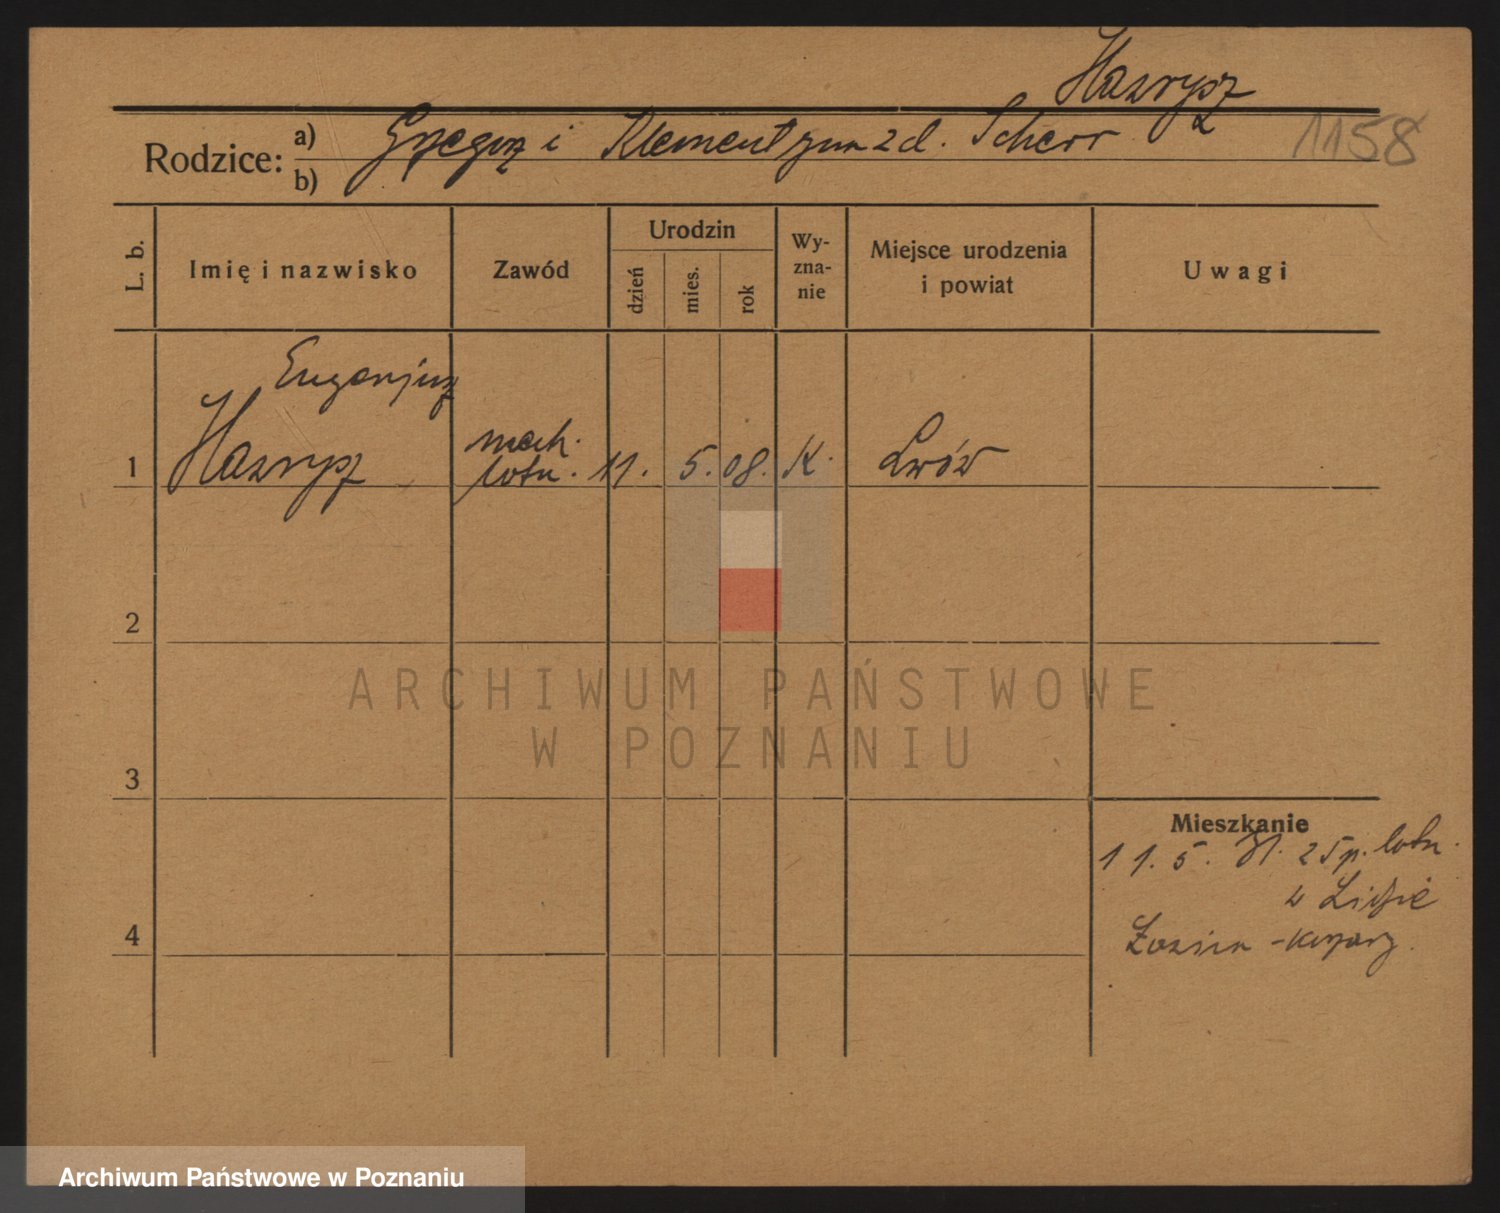 Hawrysz
1158
Rodzice: a) Grzegorz i Klementyna z d. Scherr
b)
L. b.
Imię i nazwisko
Zawód
Urodzin
dzień
mies.
rok
Wy-
zna-
nie
Miejsce urodzenia
i powiat
Uwagi
Eugenjusz
1 Hawrysz mech. lotn. 11. 5. 08. K. Lwów
2
3
4
Mieszkanie
11. 5. 31. 25 p. lotn.
w Lidzie
ARCHIWUM PAŃSTWOWE
W POZNANIU
Archiwum Państwowe w Poznaniu